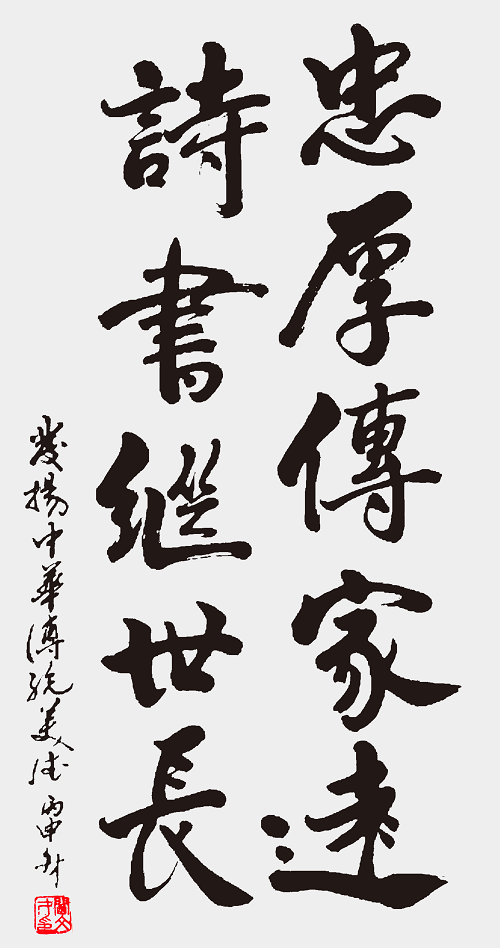 忠厚傳家遠
詩書繼世長
發揚中華傳統美德 丙申秋